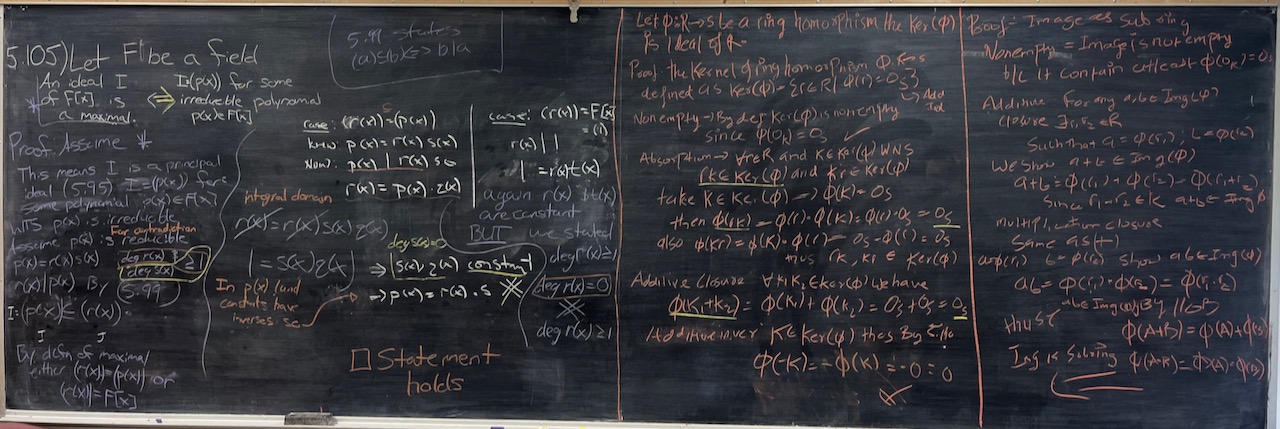 5.105) Let F be a field
An ideal I
of F[x] is
a maximal.
⟺
I=(p(x)) for some
irreducible polynomial
p(x)∈F[x]
Proof. Assume *
This means I is a principal
ideal (5.95) I=(p(x)) for
some polynomial p(x)∈F[x]
WTS p(x) is irreducible
For contradiction
Assume p(x) is reducible
p(x)=r(x)s(x)
deg r(x)
deg s(x) ≥1
r(x)|p(x) By (5.99)
I=(p(x))⊆(r(x))
I J
By defn of maximal
either (r(x))=(p(x)) or
(r(x))=F[x]
5.99 states
(a)⊆(b)⟺b|a
case: (r(x))=(p(x))
know p(x)=r(x)s(x)
Now: p(x) | r(x) so
r(x)=p(x)·z(x)
integral domain
r(x)=r(x)s(x)z(x)
1=s(x)z(x)
deg s(x)=0
⇒ s(x), z(x) constant
→p(x)=r(x)·s
In p(x) (and
constants have
inverses so
□ Statement
holds
case: (r(x))=F[x]
=(1)
r(x)|1
1=r(x)t(x)
again r(x), t(x)
are constant
BUT we stated
deg r(x)≥1
deg r(x)=0
deg r(x)≥1
Let Φ:R→S be a ring homomorphism the Ker(Φ)
is Ideal of R
Proof the Kernel of ring homomorphism Φ:R→S
defined as Ker(Φ)={r∈R| Φ(r)=0s}
Nonempty→By def Ker(Φ) is nonempty
since Φ(0R)=0s
Absorption→ ∀r∈R and K∈Ker(Φ) WNS
rk∈Ker(Φ) and Kr∈Ker(Φ)
take K∈Ker(Φ) → Φ(K)=0s
then Φ(rk)=Φ(r)·Φ(K)=Φ(r)·0s=0s
also Φ(Kr)=Φ(K)·Φ(r)=0s·Φ(r)=0s
thus rk, kr ∈ Ker(Φ)
Additive closure ∀K1K2∈Ker(Φ) we have
Φ(K1+K2)=Φ(K1)+Φ(K2)=0s+0s=0s
Additive inver K∈Ker(Φ) thes By
Φ(-K)=-Φ(K)=-0=0
Proof: Image as Subring
Nonempty = Image is not empty
b/c it contain at least Φ(0R)=0s
Additive For any a,b∈Img(Φ)
closure ∃r1,r2∈R
Such that a=Φ(r1), b=Φ(r2)
We show a+b∈Img(Φ)
a+b=Φ(r1)+Φ(r2)=Φ(r1+r2)
Since r1+r2∈R a+b∈Img Φ
multiplication closure
Same as (+)
a=Φ(r1) b=Φ(r2) show ab∈Img(Φ)
ab=Φ(r1)·Φ(r2)=Φ(r1·r2)
ab∈Img(Φ) By
thus
Φ(A+B)=Φ(A)+Φ(B)
Img is Subring Φ(A·B)=Φ(A)·Φ(B)